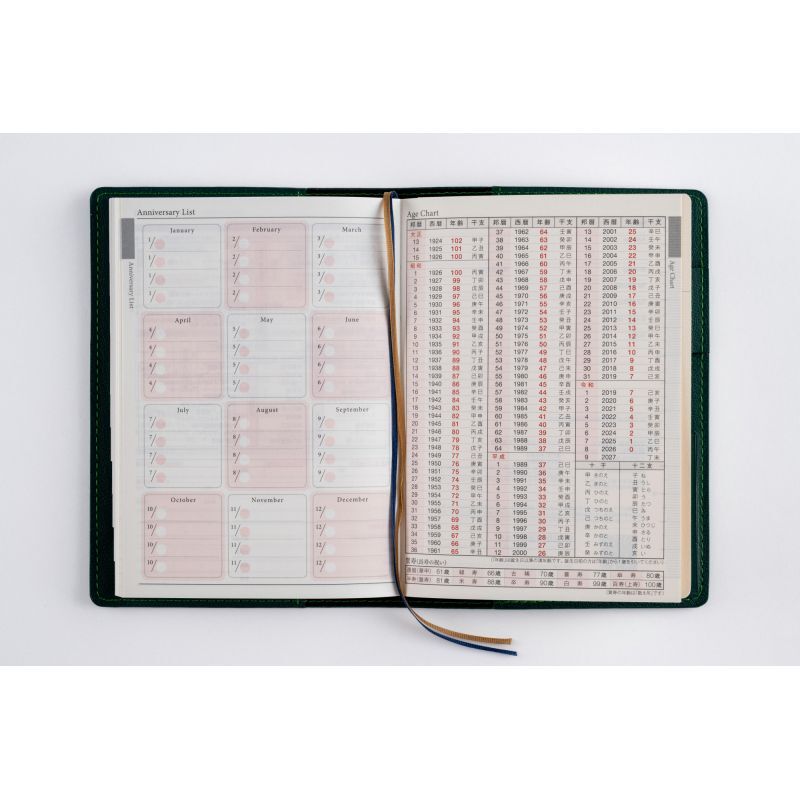 Anniversary List
Anniversary List
January
1/
1/
1/
1/
February
2/
2/
2/
2/
March
3/
3/
3/
3/
April
4/
4/
4/
4/
May
5/
5/
5/
5/
June
6/
6/
6/
6/
July
7/
7/
7/
7/
August
8/
8/
8/
8/
September
9/
9/
9/
9/
October
10/
10/
10/
10/
November
11/
11/
11/
11/
December
12/
12/
12/
12/
Age Chart
Age Chart
邦暦 西暦 年齢 干支
大正
13 1924 102 甲子
14 1925 101 乙丑
15 1926 100 丙寅
昭和
1 1926 100 丙寅
2 1927 99 丁卯
3 1928 98 戊辰
4 1929 97 己巳
5 1930 96 庚午
6 1931 95 辛未
7 1932 94 壬申
8 1933 93 癸酉
9 1934 92 甲戌
10 1935 91 乙亥
11 1936 90 丙子
12 1937 89 丁丑
13 1938 88 戊寅
14 1939 87 己卯
15 1940 86 庚辰
16 1941 85 辛巳
17 1942 84 壬午
18 1943 83 癸未
19 1944 82 甲申
20 1945 81 乙酉
21 1946 80 丙戌
22 1947 79 丁亥
23 1948 78 戊子
24 1949 77 己丑
25 1950 76 庚寅
26 1951 75 辛卯
27 1952 74 壬辰
28 1953 73 癸巳
29 1954 72 甲午
30 1955 71 乙未
31 1956 70 丙申
32 1957 69 丁酉
33 1958 68 戊戌
34 1959 67 己亥
35 1960 66 庚子
36 1961 65 辛丑
邦暦 西暦 年齢 干支
37 1962 64 壬寅
38 1963 63 癸卯
39 1964 62 甲辰
40 1965 61 乙巳
41 1966 60 丙午
42 1967 59 丁未
43 1968 58 戊申
44 1969 57 己酉
45 1970 56 庚戌
46 1971 55 辛亥
47 1972 54 壬子
48 1973 53 癸丑
49 1974 52 甲寅
50 1975 51 乙卯
51 1976 50 丙辰
52 1977 49 丁巳
53 1978 48 戊午
54 1979 47 己未
55 1980 46 庚申
56 1981 45 辛酉
57 1982 44 壬戌
58 1983 43 癸亥
59 1984 42 甲子
60 1985 41 乙丑
61 1986 40 丙寅
62 1987 39 丁卯
63 1988 38 戊辰
64 1989 37 己巳
平成
1 1989 37 己巳
2 1990 36 庚午
3 1991 35 辛未
4 1992 34 壬申
5 1993 33 癸酉
6 1994 32 甲戌
7 1995 31 乙亥
8 1996 30 丙子
9 1997 29 丁丑
10 1998 28 戊寅
11 1999 27 己卯
12 2000 26 庚辰
邦暦 西暦 年齢 干支
13 2001 25 辛巳
14 2002 24 壬午
15 2003 23 癸未
16 2004 22 甲申
17 2005 21 乙酉
18 2006 20 丙戌
19 2007 19 丁亥
20 2008 18 戊子
21 2009 17 己丑
22 2010 16 庚寅
23 2011 15 辛卯
24 2012 14 壬辰
25 2013 13 癸巳
26 2014 12 甲午
27 2015 11 乙未
28 2016 10 丙申
29 2017 9 丁酉
30 2018 8 戊戌
31 2019 7 己亥
令和
1 2019 7 己亥
2 2020 6 庚子
3 2021 5 辛丑
4 2022 4 壬寅
5 2023 3 癸卯
6 2024 2 甲辰
7 2025 1 乙巳
8 2026 0 丙午
9 2027 丁未
十干 十二支
甲 きのえ 子 ね
乙 きのと 丑 うし
丙 ひのえ 寅 とら
丁 ひのと 卯 う
戊 つちのえ 辰 たつ
己 つちのと 巳 み
庚 かのえ 午 うま
辛 かのと 未 ひつじ
壬 みずのえ 申 さる
癸 みずのと 酉 とり
戌 いぬ
亥 い
賀寿(長寿の祝い)
還暦(華甲) 61歳 緑寿 66歳 古稀 70歳 喜寿 77歳 傘寿 80歳
半寿(盤寿) 81歳 米寿 88歳 卒寿 90歳 白寿 99歳 百寿(上寿) 100歳
(賀寿の年齢は「数え年」です)